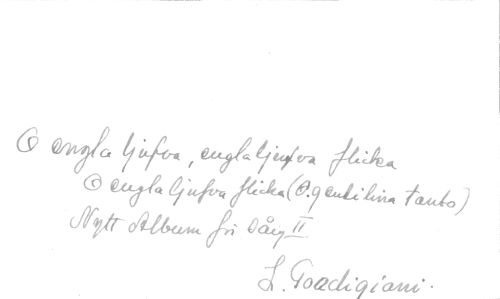 O engla ljufva, engla ljufva flicka
O engla ljufva flicka (O. gentilina tanto)
Nytt Album för Sång II
L. Gordigiani.